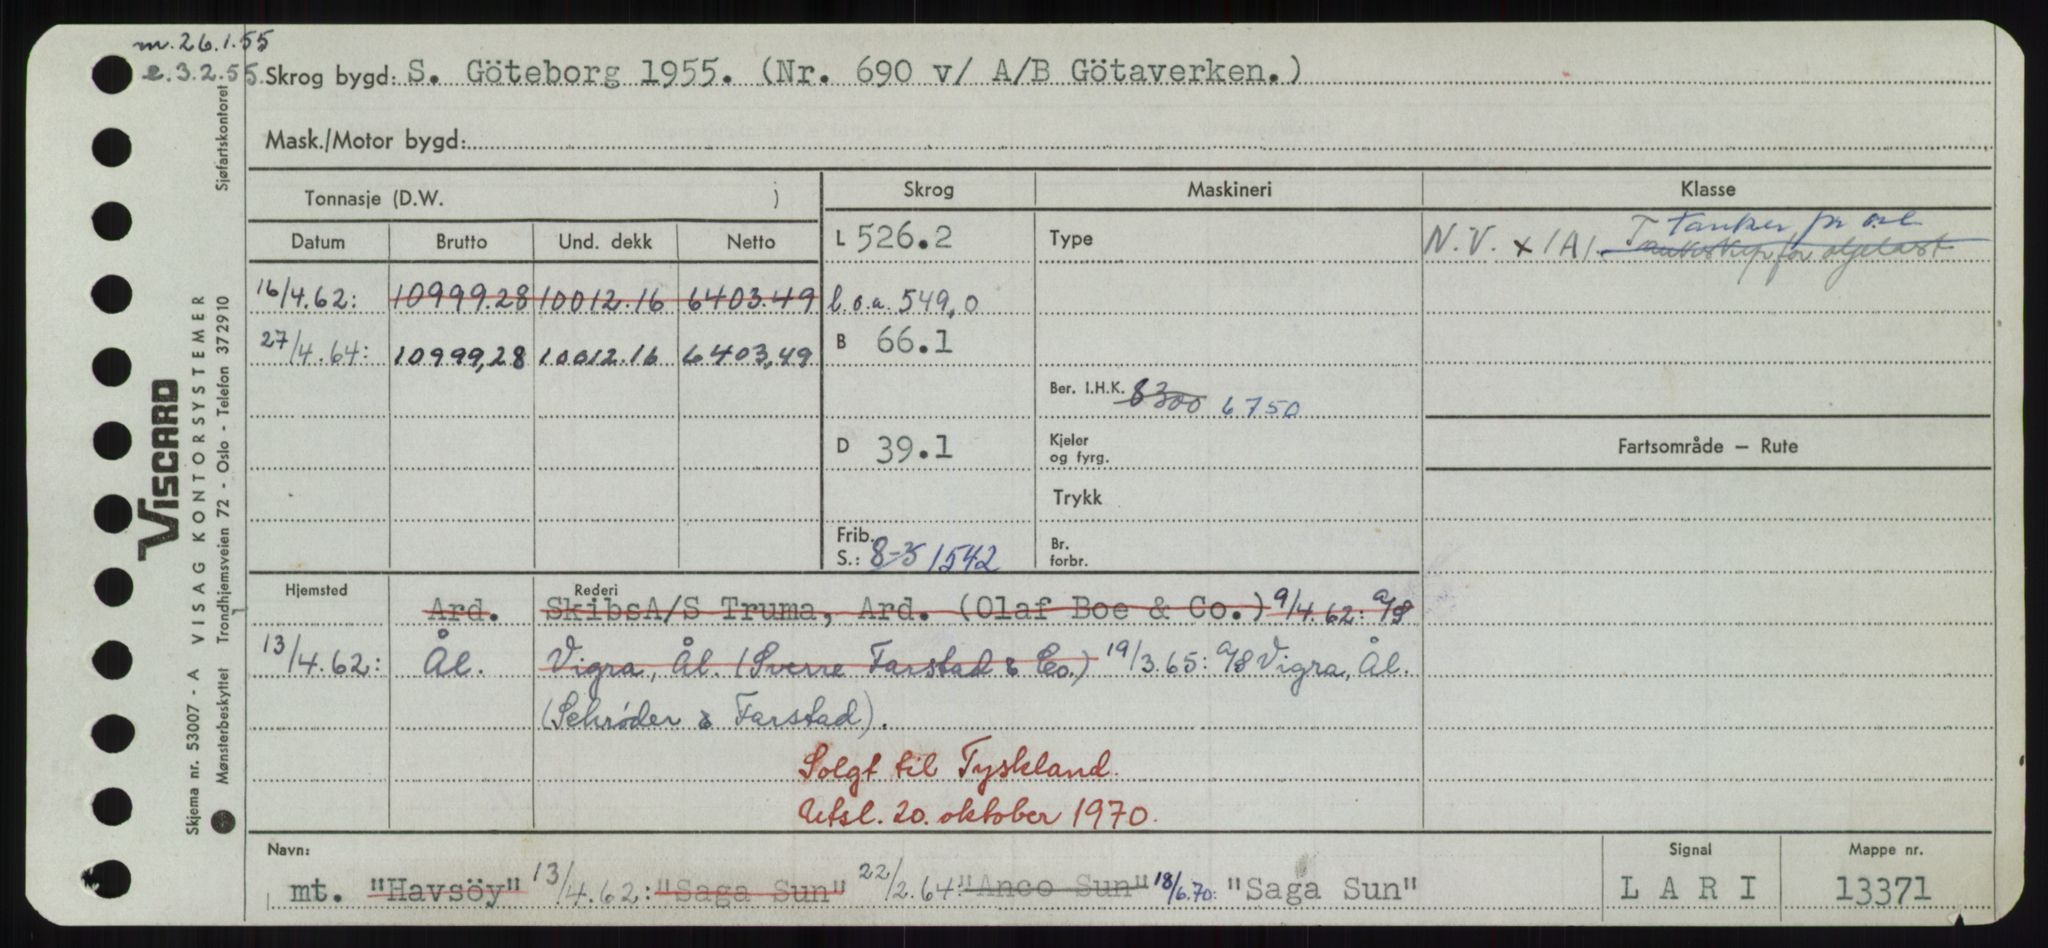 m. 26.1.55
e. 3.2.55.
Skrog bygd: S. Göteborg 1955. (Nr. 690 v/ A/B Götaverken.)
Mask./Motor bygd:
Tonnasje (D.W. )
Skrog
Maskineri
Klasse
Datum Brutto Und. dekk Netto
L 526.2
Type
N.V. x 1A1. T tanker for olje
Tankskip for oljelast
16/4.62: 10999.28 10012.16 6403.49
l.o.a. 549,0
27/4.64: 10999,28 10012.16 6403,49
B 66.1
Ber. I.H.K. 8300 6750
D 39.1
Kjeler
og fyrg.
Fartsområde — Rute
Trykk
Frib.
S.: 8-5 1542
Br.
forbr.
Hjemsted
Rederi
Ard. SkibsA/S Truma, Ard. (Olaf Boe & Co.) 9/4.62: A/S
13/4.62: Ål. Vigra, Ål. (Sverre Farstad & Co.) 19/3.65: A/S Vigra, Ål.
(Schrøder & Farstad).
Solgt til Tyskland.
Utsl. 20. oktober 1970.
Navn:
Signal
Mappe nr.
mt. "Havsöy" 13/4.62: "Saga Sun" 22/2.64: "Anco Sun" 18/6.70: "Saga Sun"
LARI
13371
VISCARD
Skjema nr. 53007 - A VISAG KONTORSYSTEMER
Mønsterbeskyttet Trondhjemsveien 72 - Oslo - Telefon 372910 Sjøfartskontoret